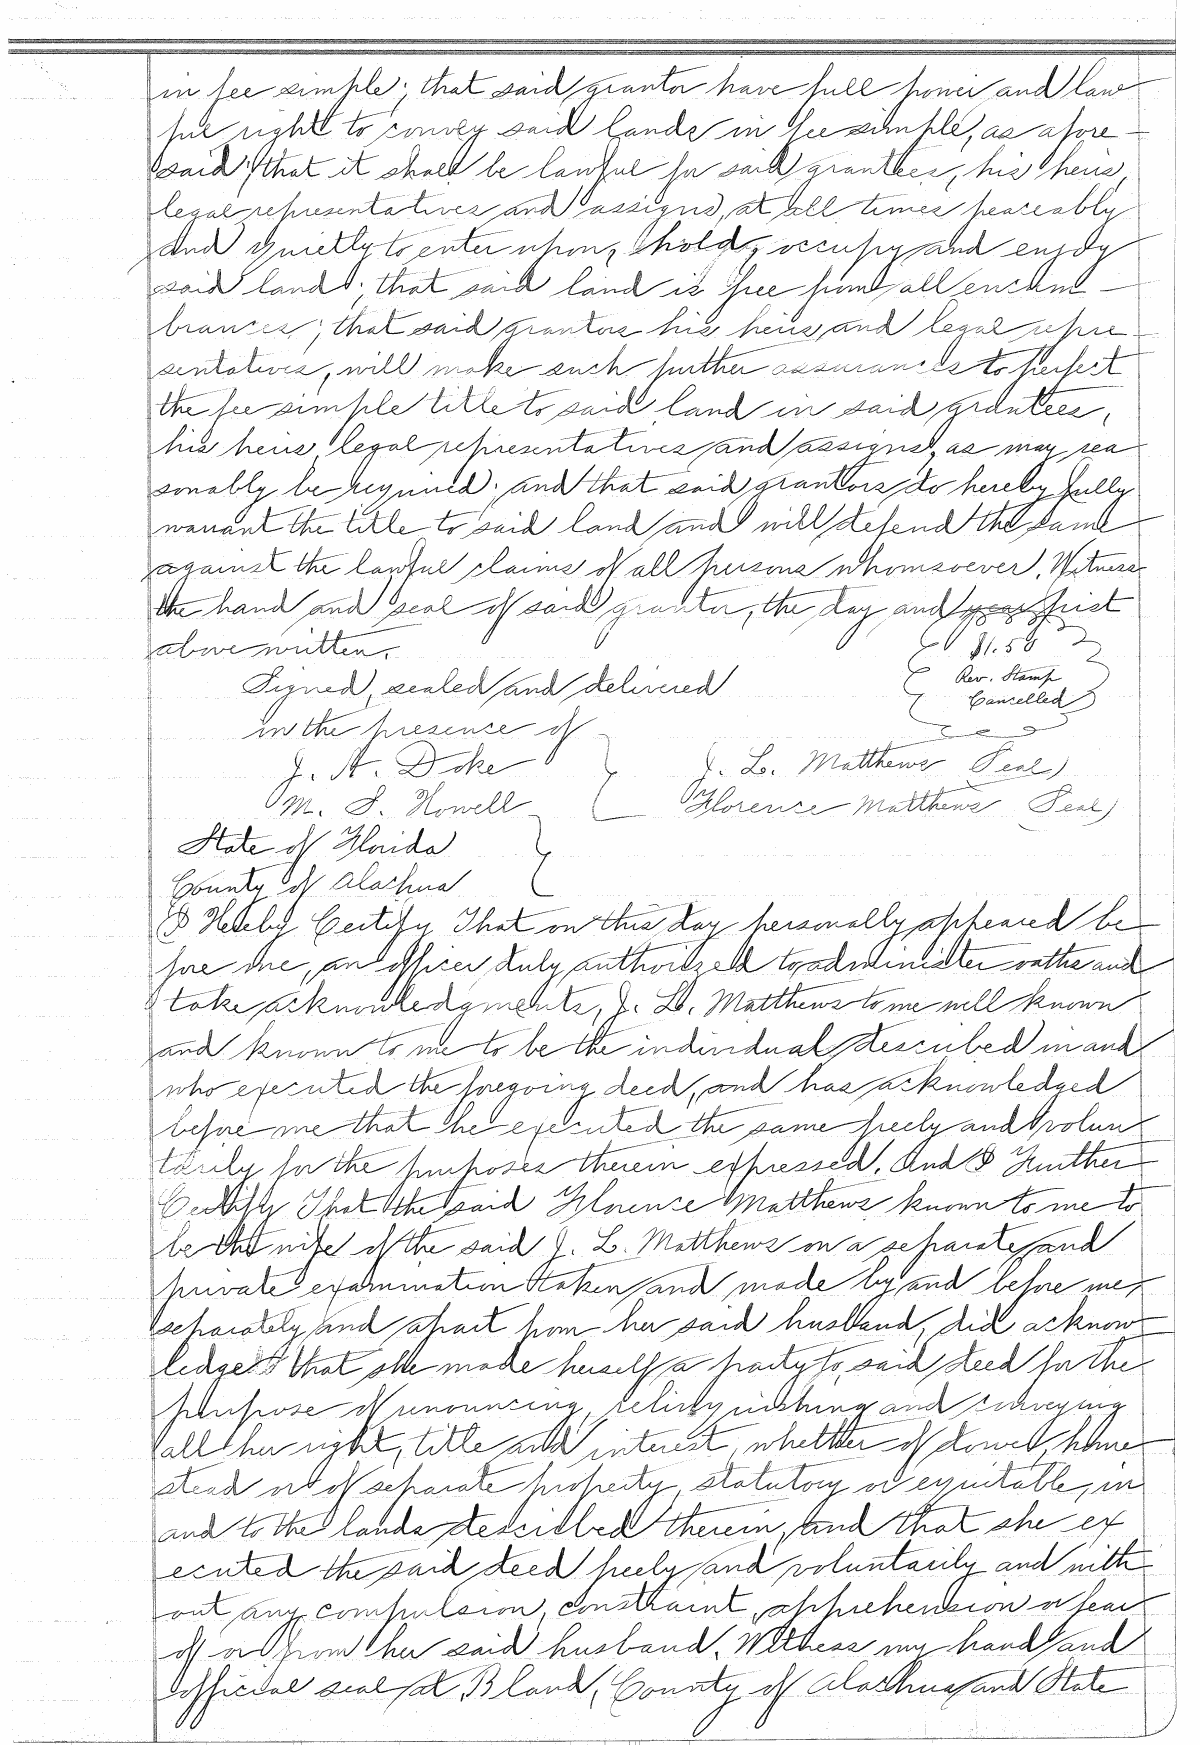 in fee simple; that said grantor have full power and law
ful right to convey said lands in fee simple, as afore -
said; that it shall be lawful for said grantees, his heirs,
legal representatives and assigns, at all times peaceably
and quietly to enter upon, hold, occupy and enjoy
said land; that said land is free from all encum -
brances; that said grantors his heirs, and legal repre
sentatives, will make such further assurances to perfect
the fee simple title to said land in said grantees,
his heirs, legal representatives and assigns, as may rea
sonably be required. and that said grantors do hereby fully
warrant the title to said land and will defend the same
against the lawful claims of all persons whomsoever. Witness
the hand and seal of said grantor, the day and year first
above written.
$1.50
Rev. Stamp
Cancelled
Signed, sealed and delivered
in the presence of
J. A. Doke J. L. Matthews Seal)
M. S. Howell Florence Matthews Seal)
State of Florida
County of Alachua
I Hereby Certify That on this day personally appeared be
fore me, an officer duly authorized to administer oaths and
take acknowledgments, J. L. Matthews to me well known
and known to me to be the individual described in and
who executed the foregoing deed, and has acknowledged
before me that he executed the same freely and volun
tarily for the purposes therein expressed. And I Further
Certify That the said Florence Matthews known to me to
be the wife of the said J. L. Matthews on a separate and
private examination taken and made by and before me,
separately and apart from her said husband, did acknow
ledge that she made herself a party to said deed for the
purpose of renouncing, relinquishing and conveying
all her right, title and interest, whether of dower, home
stead or of separate property, statutory or equitable, in
and to the lands described therein, and that she ex
ecuted the said deed freely and voluntarily and with
out any compulsion, constraint, apprehension or fear
of or from her said husband. Witness my hand and
official seal at Bland, County of Alachua and State